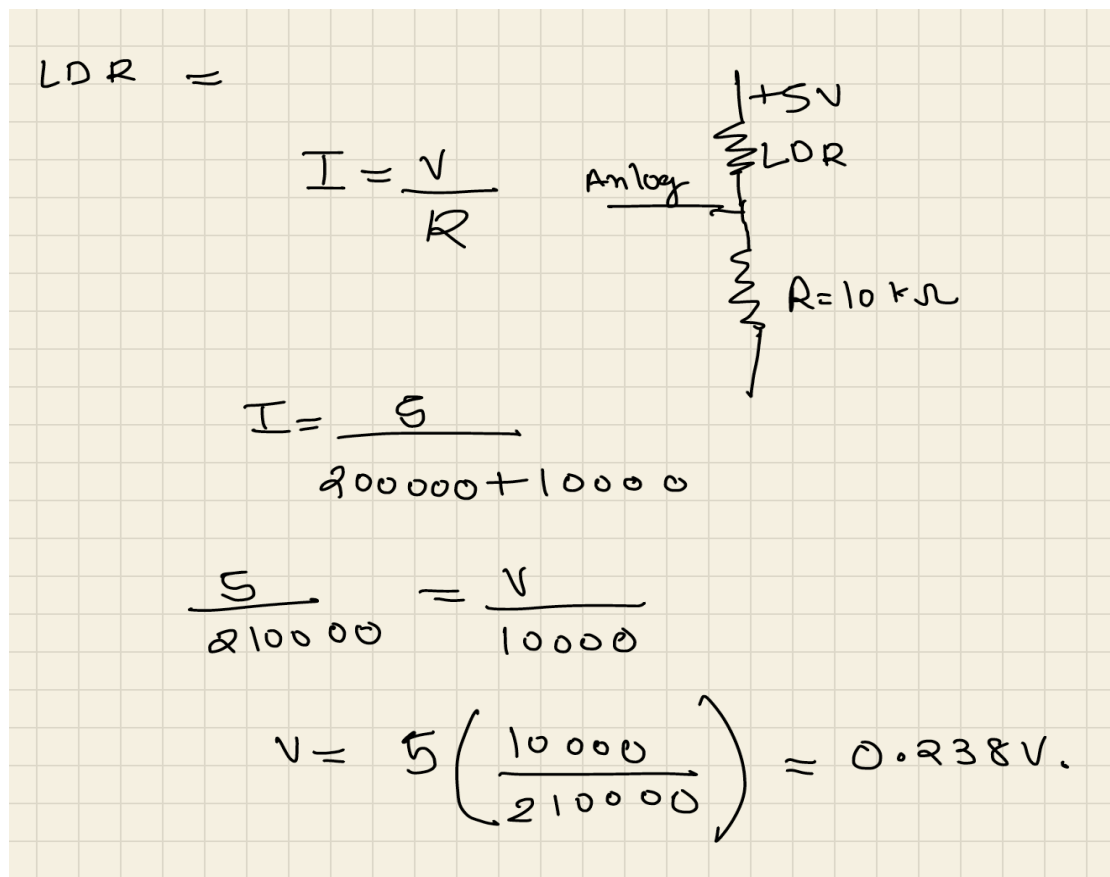 LDR =
+5V
LDR
I = V/R
Anlog
R=10kΩ
I = 5/200000+10000
5/210000 = V/10000
V = 5(10000/210000) = 0.238V.